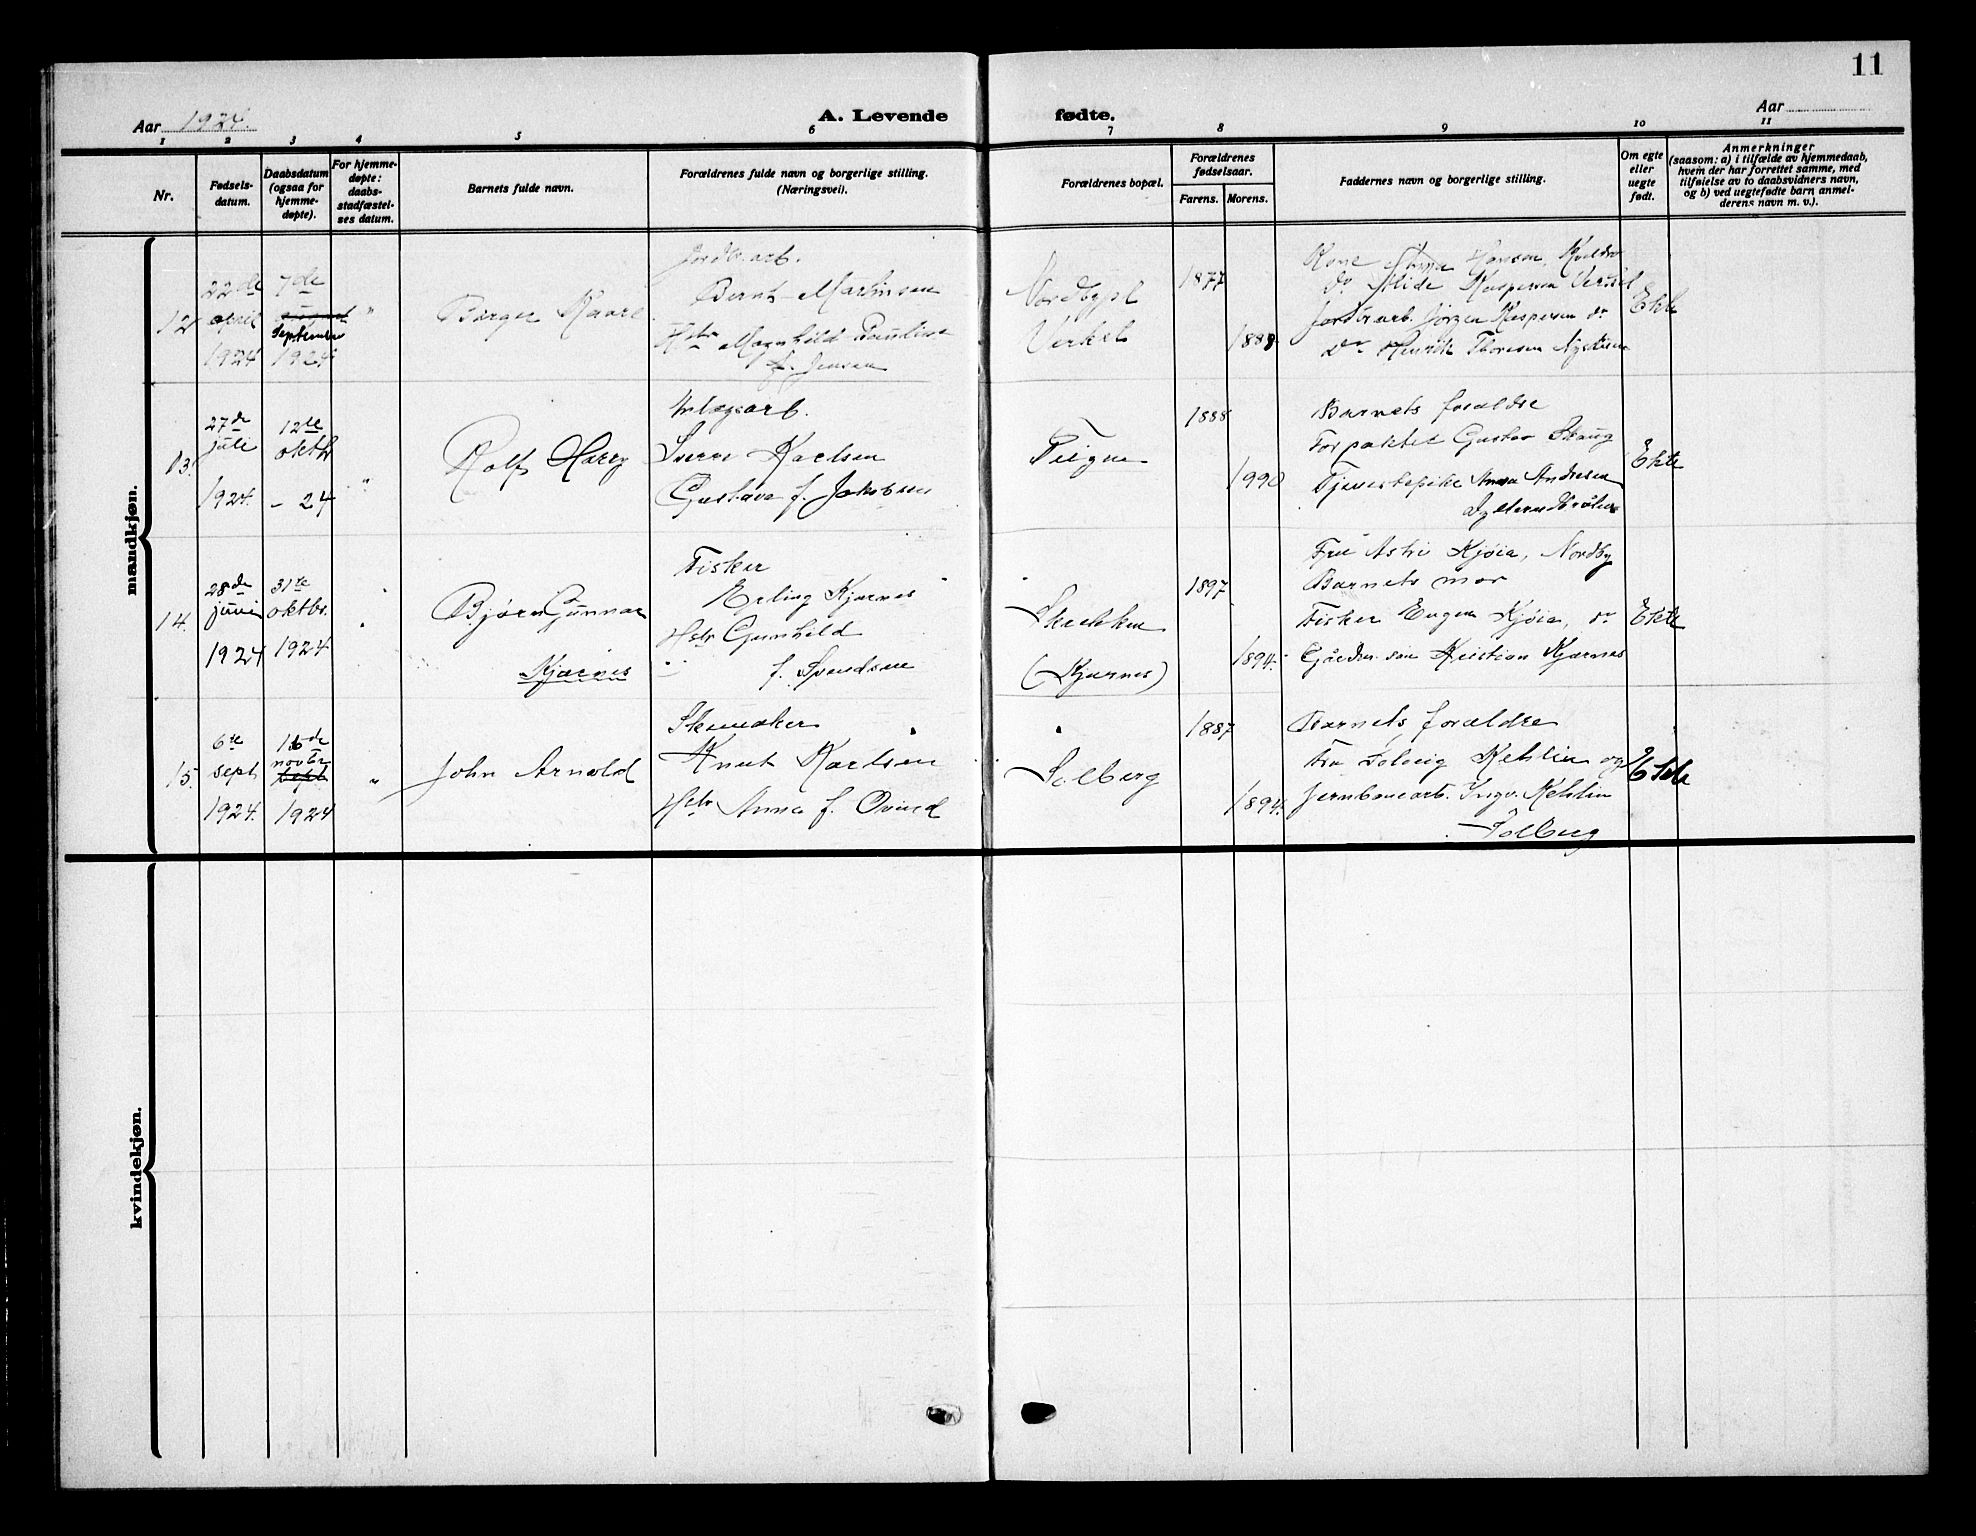 11
Aar 1924.
A. Levende fødte.
Aar
1 2 3 4 5 6 7 8 9 10 11
Nr.
Fødsels-
datum.
Daabsdatum
(ogsaa for
hjemme-
døpte).
For hjemme-
døpte:
daabs-
stadfæstel-
ses datum.
Barnets fulde navn.
Forældrenes fulde navn og borgerlige stilling.
(Næringsvei).
Forældrenes bopæl.
Forældrenes
fødselsaar.
Farens. Morens.
Faddernes navn og borgerlige stilling.
Om egte
eller
uegte
født.
Anmerkninger
(saasom: a) i tilfælde av hjemmedaab,
hvem der har forrettet samme, med
tilføielse av to daabsvidners navn,
og b) ved uegtefødte barn anmel-
derens navn m. v.).
mandkjøn.
12
22de
april
1924
7de
september
1924
"
Birger Kaare
Jordbr.arb.
Bernt Martinsen
Hstr Magnhild Pauline
f. Jensen
Nordbypl
Verkel
1877
1888
Kone Anna Hansen,
do Alide Kaspersen
Jordbrarb. Jörgen Kaspersen do
do Henrik Thoresen
Ekte
13.
27de
juli
1924.
12te
oktb
- 24
"
Rolf Harry
Anlægsarb.
Sverre Karlsen
Gustava f. Jakobsen
Teigen
1888
1990
Barnets forældre
Forpakter Gustav Skaug
Tjenestepike Anna Andresen
Ekte
14.
28de
juni
1924
31te
oktbr.
1924
Bjørn Gunnar
Kjærnes
Fisker
Erling Kjærnes
Hstr Gunhild
f. Svendsen
Skrekken
(Kjærnes)
1897
1894.
Fru Astri Kjøia, Nordby
Barnets mor
Fisker Eugen Kjøia, do
Gårdbr. søn Kristian Kjærnes
Ekte
15.
6te
sept
1924.
16de
novbr
sept
1924
"
John Arnold
Skomaker
Knut Karlsen
Hstr Anna f. Øvrud
Solberg
1887
1894.
Barnets forældre
Fru Solveig Kehlin og
Jernbanearb. Ingv. Kehlin
Solberg
Ekte
kvindekjøn.